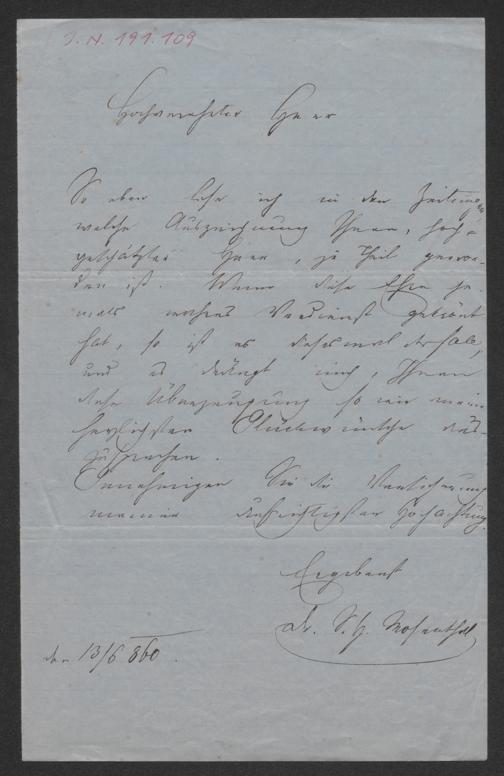 I. N. 191.109
Hochverehrter Herr
So eben lese ich in den Zeitungen
welche Auszeichnung Ihnen, hoch-
geschätzter Herr, zu Theil gewor-
den ist. Wenn diese Ehre je-
mals wahres Verdienst gekrönt
hat, so ist es diesmal der Fall,
und es drängt mich, Ihnen
diese Überzeugung so wie meine
herzlichsten Glückwünsche aus-
zusprechen.
Genehmigen Sie die Versicherung
meiner aufrichtigsten Hochachtung.
Ergebenst
Dr. S. H. Mosenthal
den 13/6 860.